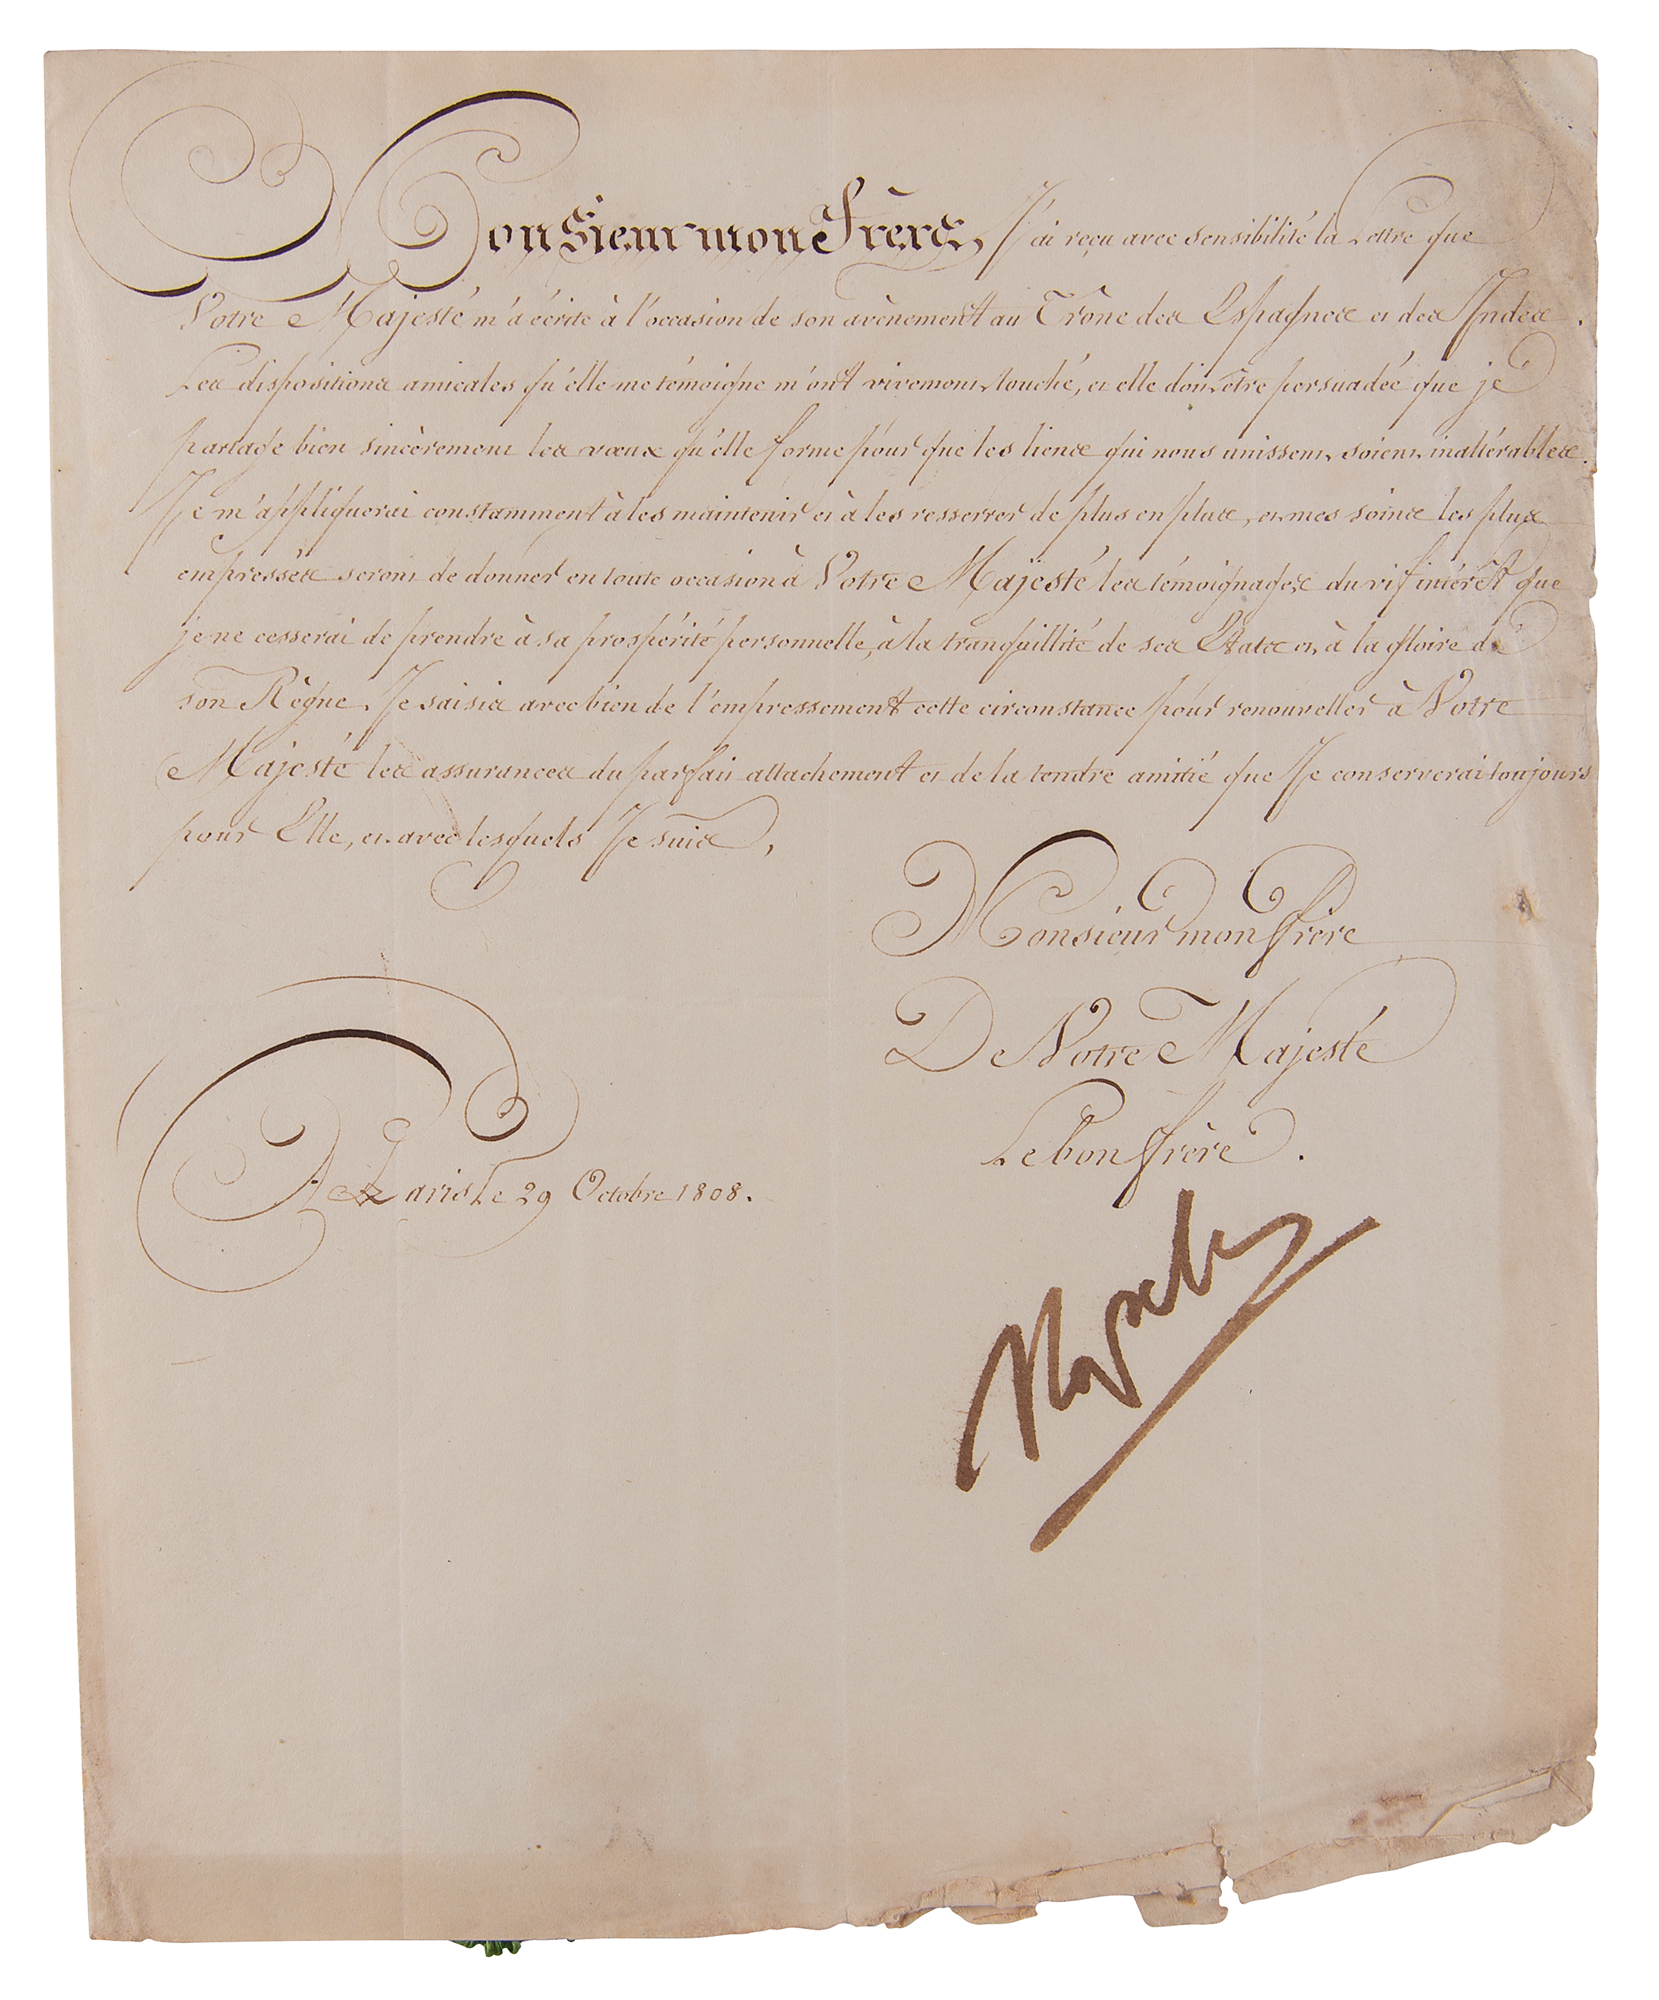 Monsieur mon Frère, J'ai reçu avec sensibilité la Lettre que
Votre Majesté m'a écrite à l'occasion de son avènement au Trône des Espagnes et des Indes.
Les dispositions amicales qu'elle me témoigne m'ont vivement touché, et elle doit être persuadée que je
partage bien sincèrement les vœux qu'elle forme pour que les liens qui nous unissent, soient inaltérables.
Je m'appliquerai constamment à les maintenir et à les resserrer de plus en plus, et mes soins les plus
empressés seront de donner en toute occasion à Votre Majesté les témoignages du vif intérêt que
je ne cesserai de prendre à sa prospérité personnelle, à la tranquillité de ses Etats et à la gloire de
son Règne. Je saisis avec bien de l'empressement cette circonstance pour renouveller à Votre
Majesté les assurances du parfait attachement et de la tendre amitié que Je conserverai toujours
pour Elle, et avec lesquels Je suis,
Monsieur mon frère
De Votre Majesté
Le bon frère.
A Paris Le 29 Octobre 1808.